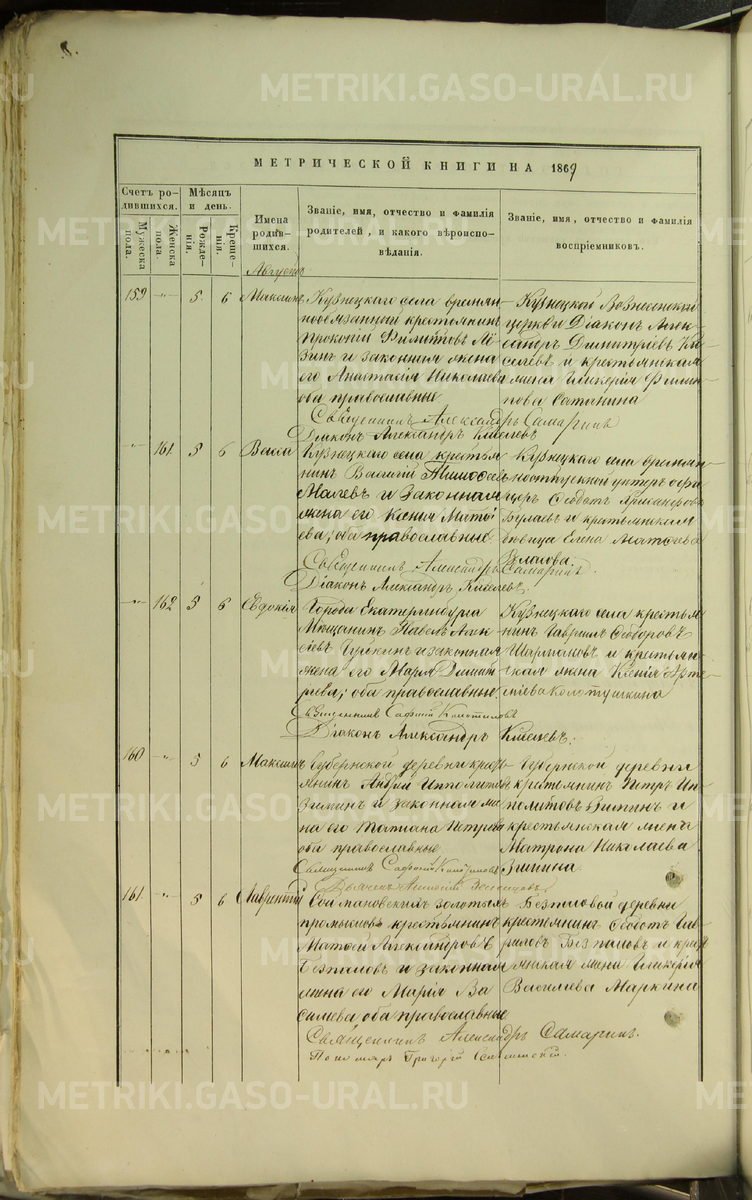 METRIKI.GASO-URAL.RU
МЕТРИЧЕСКОЙ КНИГИ НА 1869
Счетъ ро-
дившихся.
Мужеска пола.
Женска пола.
Мѣсяцъ
и день.
Рожде-
нія.
Креще-
нія.
Имена
родив-
шихся.
Званіе, имя, отчество и фамилія
родителей, и какого вѣроиспо-
вѣданія.
Званіе, имя, отчество и фамилія
воспріемниковъ.
Августъ
159 -"- 5 6 Максимъ
Кузнецкаго села времен
нообязанный крестьянинъ
Прокопій Филиповъ
и законная жена
его Анастасія Николаева
оба православные
Кузнецкой Вознесенской
церкви Діаконъ Алек
сандръ Димитріевъ Ки
селевъ и крестьянская
жена Гликерія Филип
пова Сатанина
Священникъ Александръ Самаринъ
Діаконъ Александръ Киселевъ
-"- 161 5 6 Васса
Кузнецкаго села крестья
нинъ Василій Тимофеевъ
и законная
жена его Ксенія Матѳ
ева, оба православные
Кузнецкаго села времен
ноотпускной унтеръ офи
церъ Ѳеодотъ
Булаевъ и крестьянская
девица Елена Матвеева
Священникъ Александръ Самаринъ.
Діаконъ Александръ Киселевъ.
-"- 162 5 6 Евдокія
Города Екатеринбурга
Мѣщанинъ Павелъ Алек
сѣевъ и законная
жена его Марія Димит
ріева; оба православные
Кузнецкаго села крестья
нинъ Гавріилъ Ѳеодоровъ
и крестьян
ская жена Ксенія Арте
міева Колотушкина
Священникъ Сафоній
Діаконъ Александръ Киселевъ.
160 -"- 5 6 Максимъ
Губернской деревни крест
янинъ Андрей Ипполитовъ
Зиминъ и законная же
на его Татіана Петрова
оба православные
Губернской деревни
крестьянинъ Петръ Ип
политовъ Зиминъ и
крестьянская жена
Матрона Николаева
Зимина
Священникъ Сафоній
161 -"- 5 6 Лаврентій
золотыхъ
промысловъ крестьянинъ
Матѳей Александровъ
Безпаловъ и законная
жена его Марія Ва
сильева оба православные
Безпаловой деревни
крестьянинъ Ѳеодотъ Гав
риловъ Безпаловъ и крест
янская жена Гликерія
Василева Маркина
Священникъ Александръ Самаринъ.
Пономарь Григорій